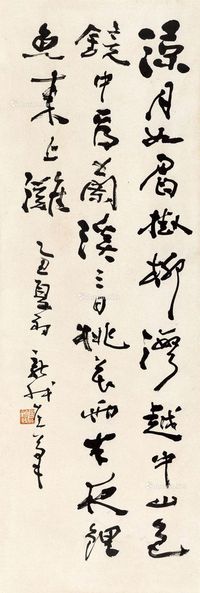 涼月如眉掛柳灣越中山色
鏡中看蘭溪三日桃花雨半夜鯉
魚來上灘 乙丑夏初 新我左筆